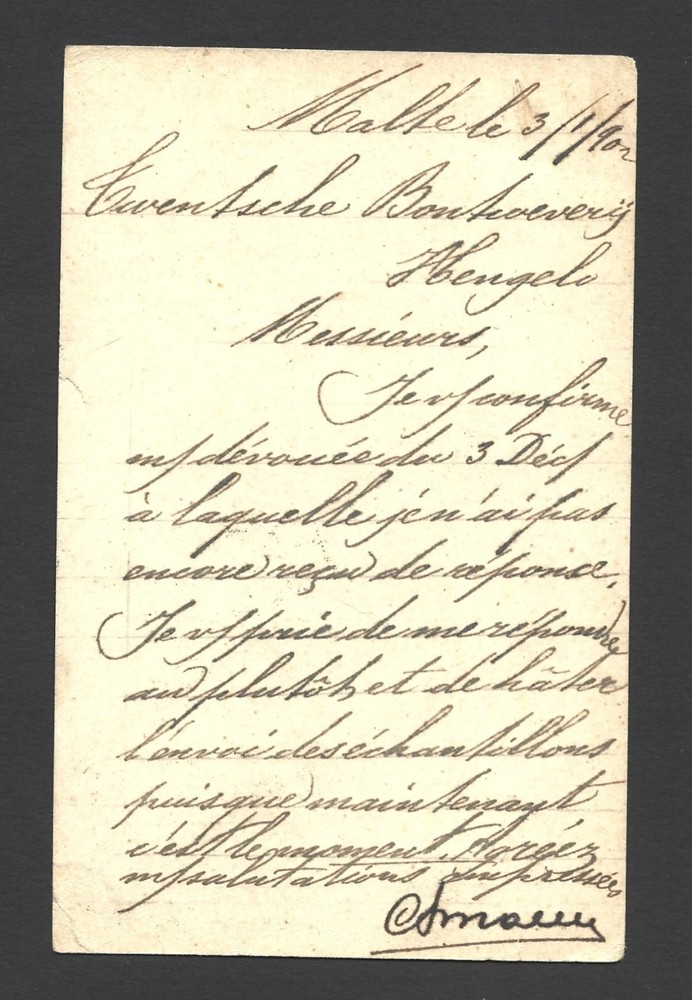 Malte le 3/1/902
Twentsche Bontweverij
Hengelo
Messieurs,
Je vs/ confirme
m/ dévouée du 3 Déc/
à laquelle je n'ai pas
encore reçu de réponse.
Je vs/ prie de me répondre
au plutôt, et de hâter
l'envoi des échantillons
puisque maintenant
c'est le moment. Agréez
m/ salutations empressées